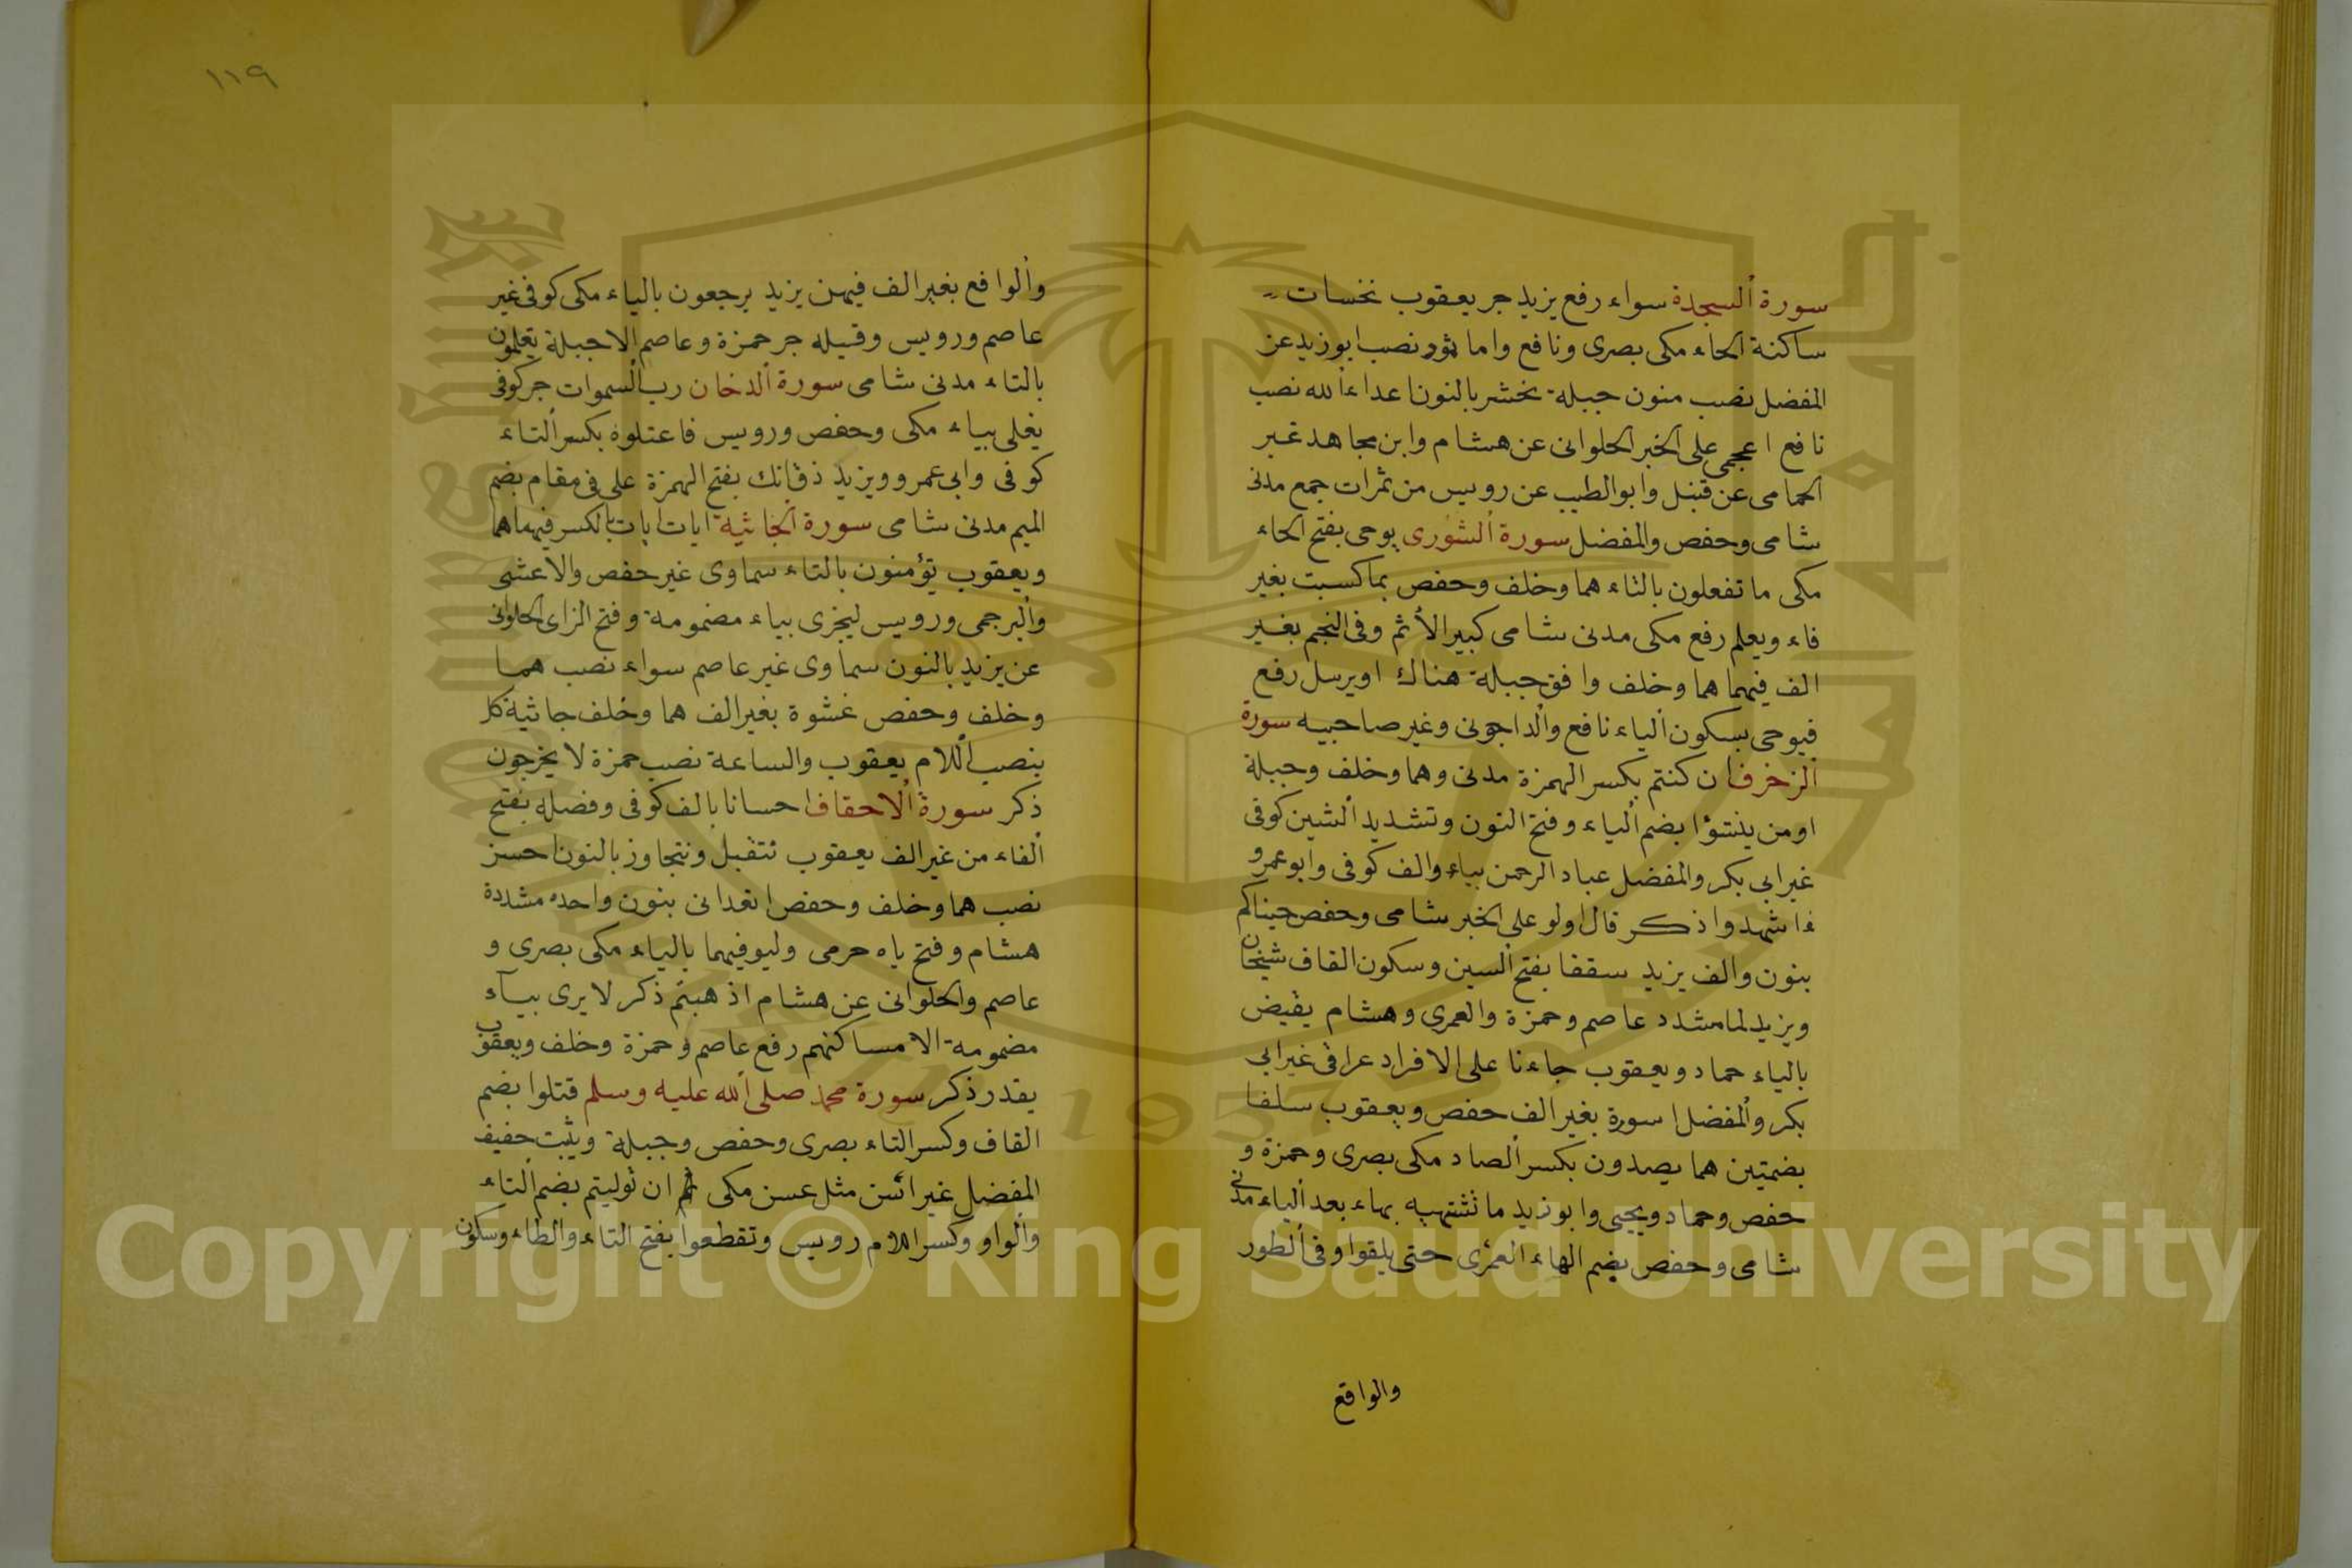 سورة السجدة سواء رفع يزيد جر يعقوب نحسات
ساكنة الحاء مكى بصرى ونافع واما ثمود نصب ابوزيد عن
المفضل نصب منون جبلة نحشر بالنون اعداء الله نصب
نافع اعجمى على الخبر الحلوانى عن هشام وابن مجاهد غير
الحمامى عن قنبل وابوالطيب عن رويس من ثمرات جمع مدنى
شامى وحفص والمفضل سورة الشورى يوحى بفتح الحاء
مكى ما تفعلون بالتاء هما وخلف وحفص بما كسبت بغير
فاء ويعلم رفع مكى مدنى شامى كبير الأثم وفى النجم بغير
الف فيهما هما وخلف وافق جبلة هناك اويرسل رفع
فيوحى بسكون الياء نافع والداجونى وغير صاحبيه سورة
الزخرف ان كنتم بكسر الهمزة مدنى وهما وخلف وجبلة
اومن ينشؤا بضم الياء وفتح النون وتشديد الشين كوفى
غير ابى بكر والمفضل عباد الرحمن بباء والف كوفى وابوعمرو
ءاشهدوا ذكر قال اولو على الخبر شامى وحفص جيناكم
بنون والف يزيد سقفا بفتح السين وسكون القاف شيخان
ويزيد لما مشدد عاصم وحمزة والعمرى وهشام يقيض
بالياء حماد ويعقوب جاءنا على الافراد عراقى غير ابى
بكر والمفضل اسورة بغير الف حفص ويعقوب سلفا
بضمتين هما يصدون بكسر الصاد مكى بصرى وحمزة و
حفص وحماد ويحيى وابوزيد ما تشتهيه بهاء بعد الياء مدنى
شامى وحفص بضم الهاء العمرى حتى يلقوا وفى الطور
والواقع
١١٩
والواقع بغير الف فيهن يزيد يرجعون بالياء مكى كوفى غير
عاصم ورويس وقيله جر حمزة وعاصم الا جبلة يعلمون
بالتاء مدنى شامى سورة الدخان رب السموات جر كوفى
يغلى بياء مكى وحفص ورويس فاعتلوه بكسر التاء
كوفى وابى عمرو ويزيد ذق انك بفتح الهمزة على فى مقام بضم
الميم مدنى شامى سورة الجاثية ايات ايات بالكسر فيهما هما
ويعقوب تؤمنون بالتاء سماوى غير حفص والاعشى
والبرجمى ورويس ليجزى بياء مضمومة وفتح الزاى الحلوانى
عن يزيد بالنون سماوى غير عاصم سواء نصب هما
وخلف وحفص غشوة بغير الف هما وخلف جاثية كل
بنصب اللام يعقوب والساعة نصب حمزة لا يخرجون
ذكر سورة الاحقاف احسانا بالف كوفى وفصله بفتح
الفاء من غير الف يعقوب نتقبل ونتجاوز بالنون احسن
نصب هما وخلف وحفص اتعدانى بنون واحدة مشددة
هشام وفتح ياه حرمى وليوفيهما بالياء مكى بصرى و
عاصم والحلوانى عن هشام اذهبتم ذكر لا يرى بياء
مضمومة الا مساكنهم رفع عاصم وحمزة وخلف ويعقوب
يقدر ذكر سورة محمد صلى الله عليه وسلم قتلوا بضم
القاف وكسر التاء بصرى وحفص وجبلة ويثبت خفيف
المفضل غير ائسن مثل عسن مكى ثم ان توليتم بضم التاء
والواو وكسر اللام رويس وتقطعوا بفتح التاء والطاء وسكون
1957
Copyright © King Saud University